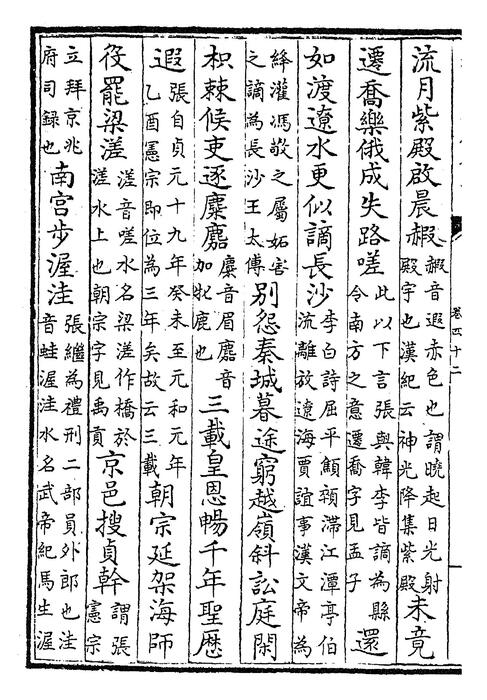 流月紫殿啟晨赮
赮音遐赤色也謂曉起日光射
殿宇也漢紀云神光降集紫殿
未竟
遷喬樂俄成失路嗟
此以下言張與韓李皆謫為縣
令南方之意遷喬字見孟子
還
如渡遼水更似謫長沙
李白詩屈平顦顇滯江潭亭伯
流離放遼海賈誼事漢文帝為
絳灌馮敬之屬妬害
之謫為長沙王太傅
別怨秦城暮途窮越嶺斜訟庭閑
枳棘候吏逐麋麚
麋音眉麚音
加牝鹿也
三載皇恩暢千年聖歷
遐
張自貞元十九年癸未至元和元年
乙酉憲宗即位為三年矣故云三載
朝宗延架海師
役罷梁溠
溠音嗟水名梁溠作橋於
溠水上也朝宗字見禹貢
京邑搜貞幹
謂張
憲宗
立拜京兆
府司錄也
南宮步渥洼
張繼為禮刑二部員外郎也洼
音蛙渥洼水名武帝紀馬生渥
卷四十二